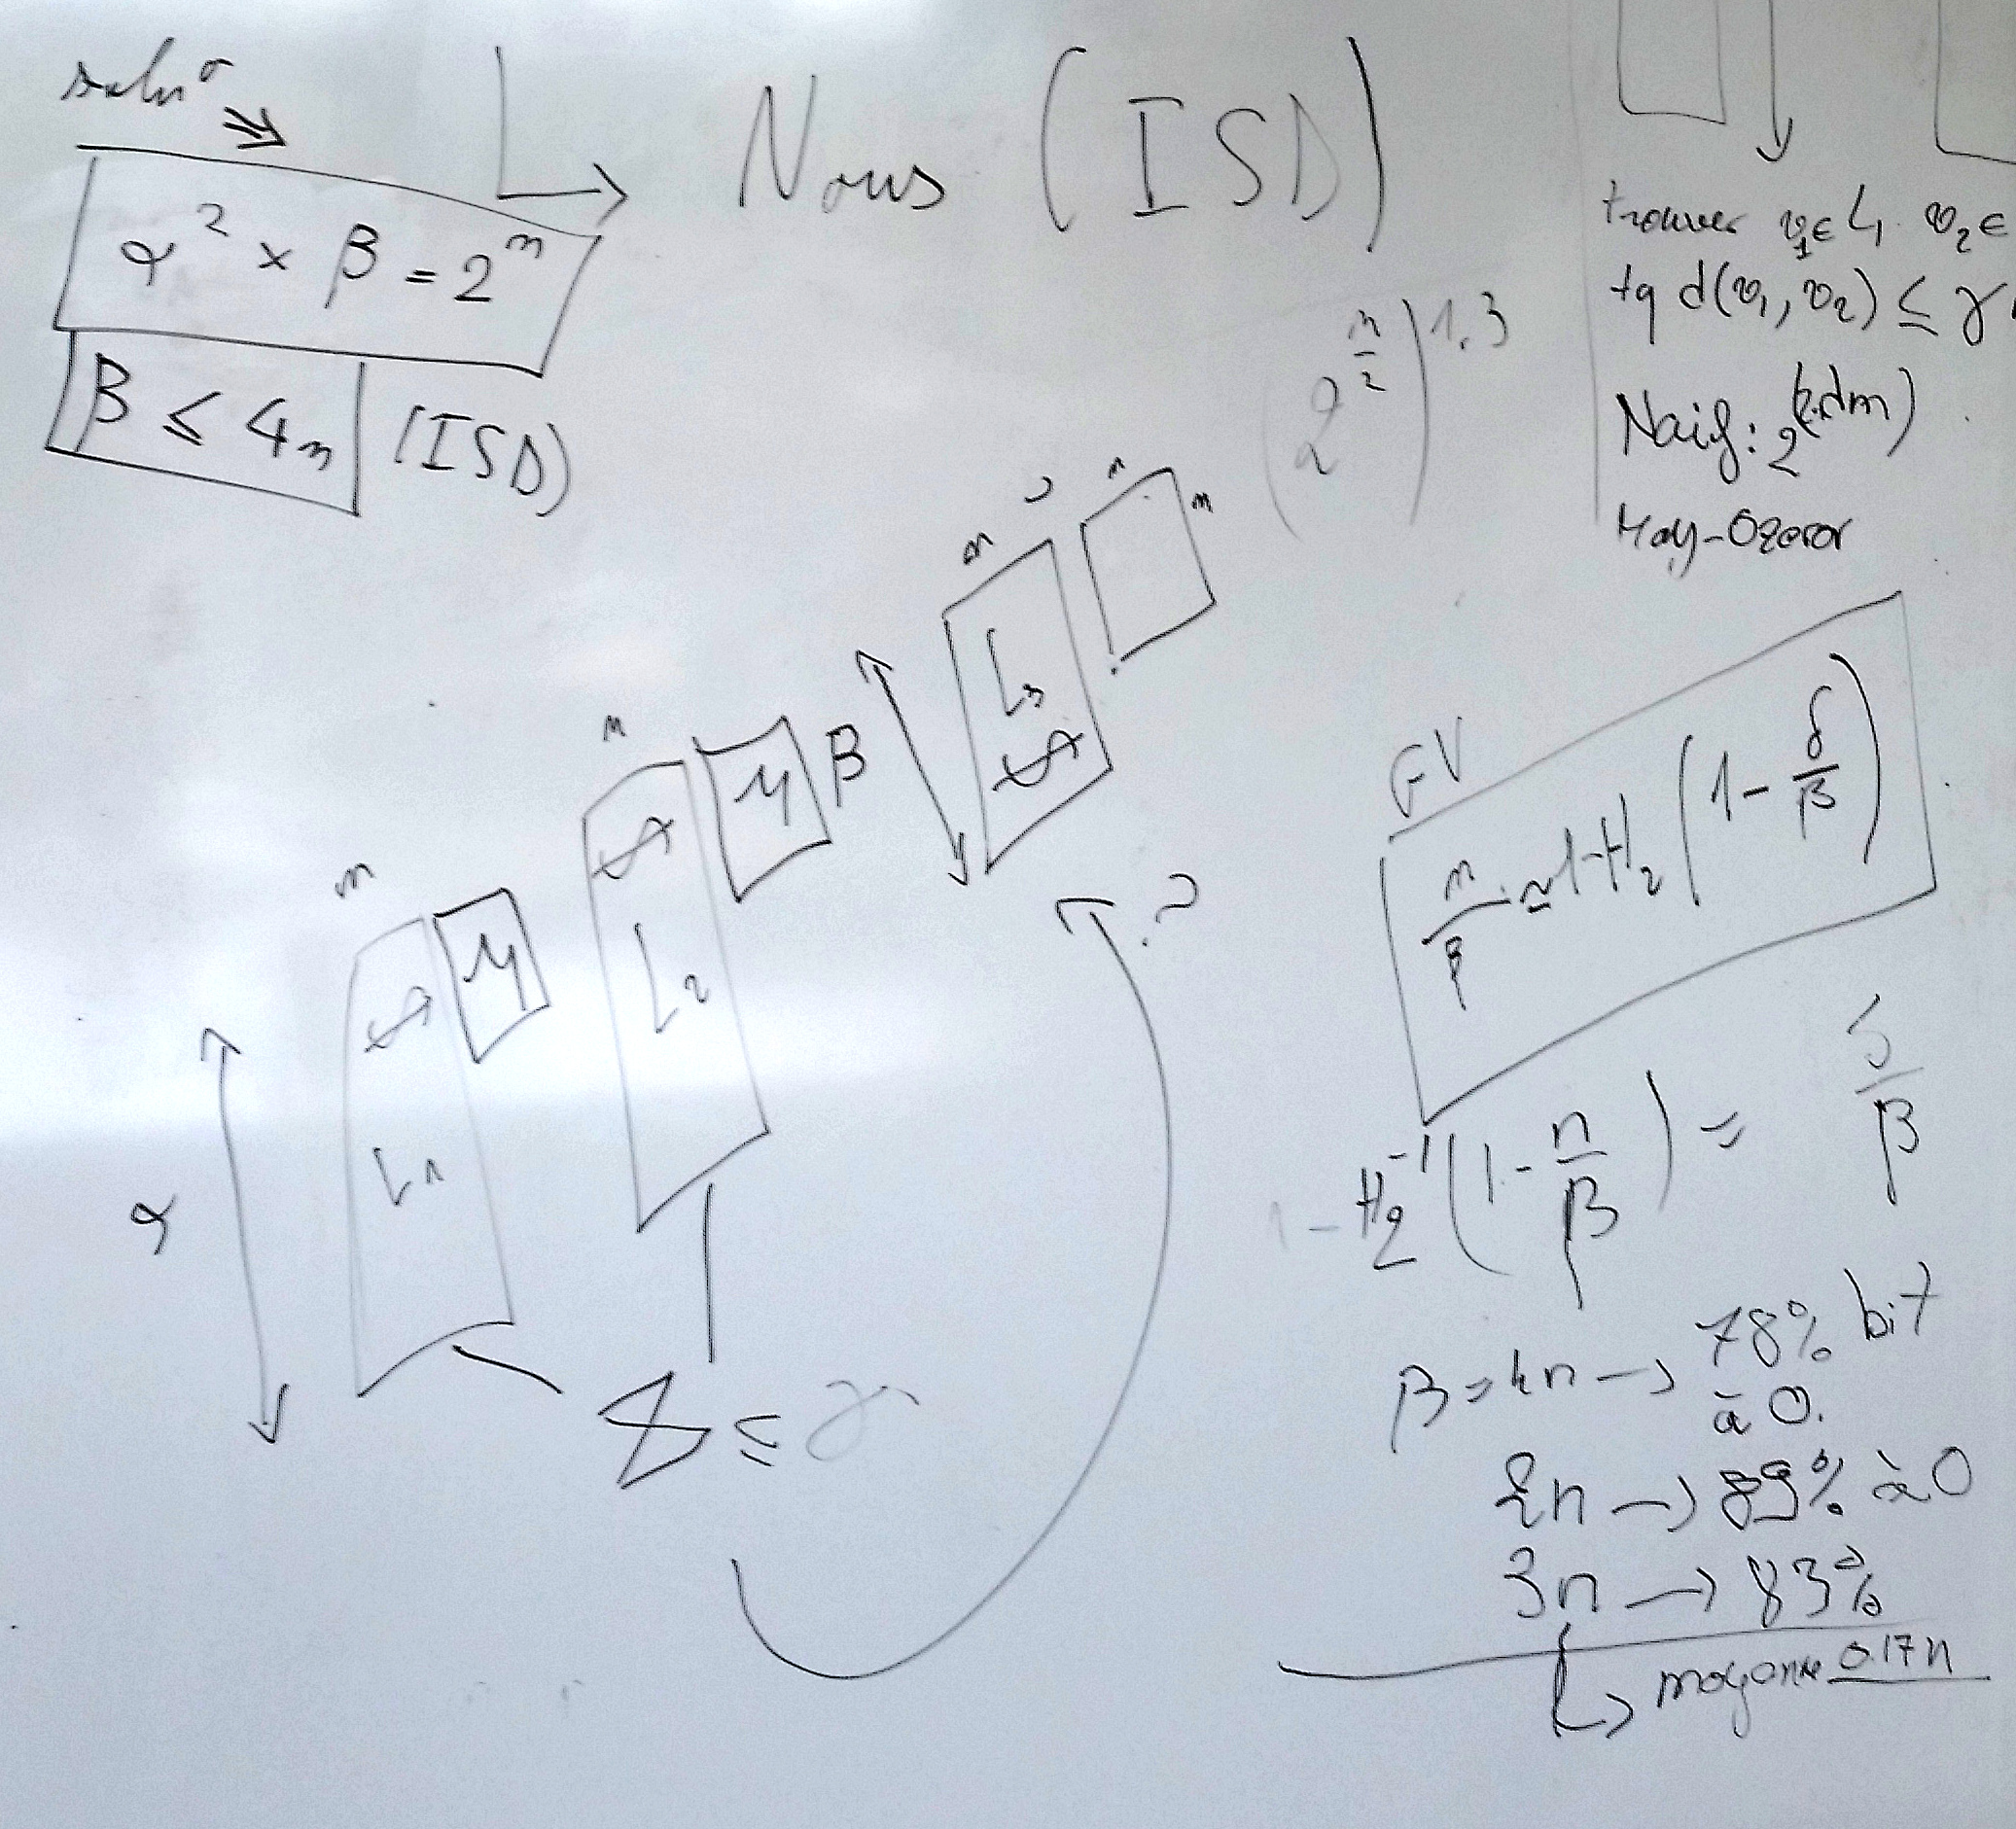 soln⁰ ⇒
α² × β = 2ⁿ
β ≤ 4n (ISD)
↳ Nous (ISD)
(2^(n/2))^1.3
trouver v₁ ∈ L₁ v₂ ∈
tq d(v₁, v₂) ≤ γ
Naif: 2
May-Ozerov
n
α
L₁
M
n
L₂
M
β
n
L₃
n
n
?
≤ γ
GV
n/β ≃ 1-H₂(1 - δ/β)
1 - H₂⁻¹(1 - n/β) = δ/β
β = 4n → 78% bit
à 0.
2n → 89% à 0
3n → 83%
↳ moyenne 0.17n